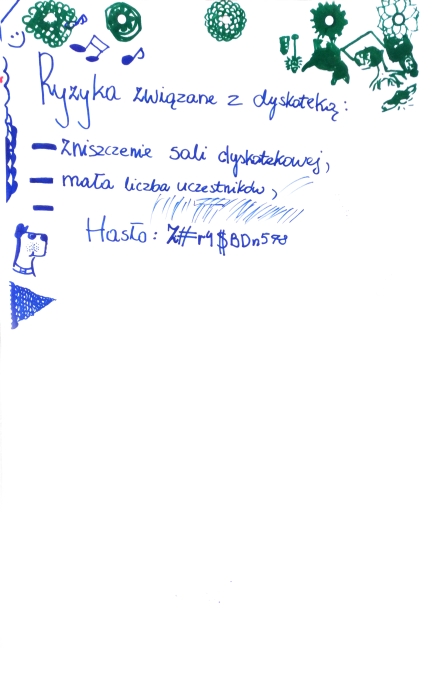 Ryzyka związane z dyskoteką:
– zniszczenie sali dyskotekowej,
– mała liczba uczestników,
–
Hasło: Z#r4$BDn598